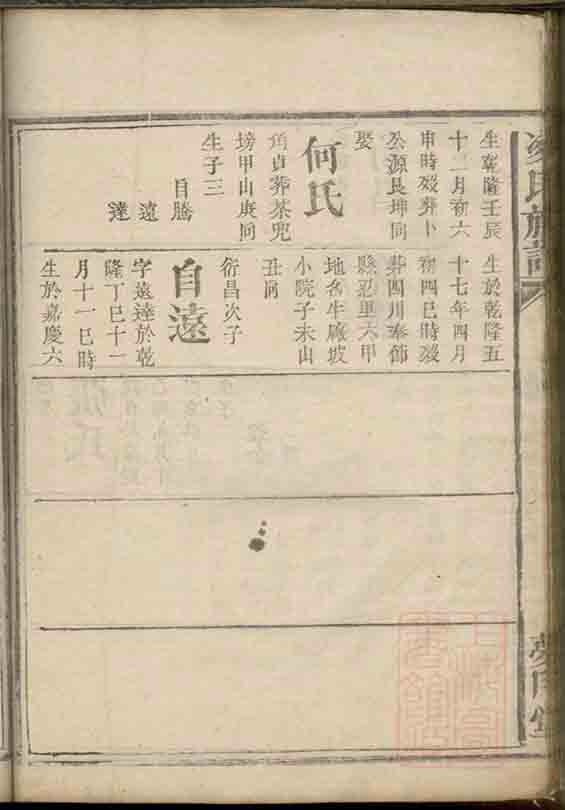 生乾隆壬辰
十二月初六
申時歿葬卜
公源艮坤向
娶
何氏
角貞葬茶兜
塝甲山庚向
生子三
自騰
遠
達
生於乾隆五
十七年四月
初四巳時歿
葬四川奉節
縣忍里六甲
地名牛廠坡
小院子未山
丑向
衍昌次子
自遠
字遠達於乾
隆丁巳十一
月十一巳時
生於嘉慶六
氏族譜